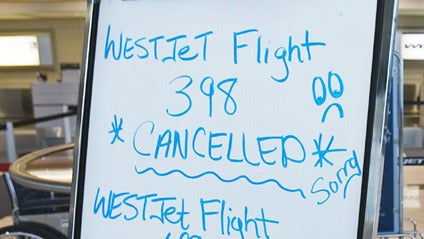 WESTJET Flight
398
*CANCELLED*
Sorry
WESTJet Flight